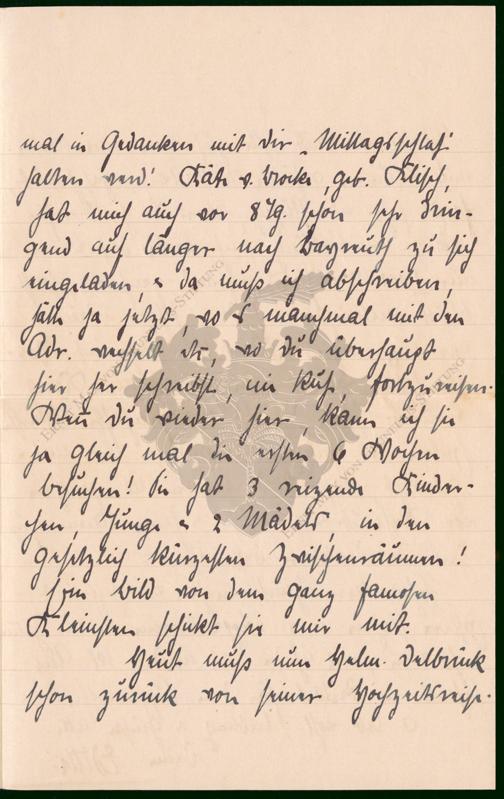 mal in Gedanken mit dir „Mittagsschlaf“
halten werd! Käte v. Brocke, geb. Klisch,
hat mich auch vor 8 Tg. schon sehr drin-
gend auf länger nach Bayreuth zu sich
eingeladen, u da muß ich abschreiben,
hätte ja jetzt, wo manchmal mit den
Adr. wechselt etc, wo du überhaupt
hier her schreibst, nie Ruh, fortzureisen.
Wen̅ du wieder hier, kann ich sie
ja gleich mal die ersten 6 Wochen
besuchen! Sie hat 3 reizende Kinder-
chen, Junge u 2 Mädels, in den
gesetzlich kürzesten Zwischenräumen!
Ein Bild von dem ganz famosen
Kleinsten schickt sie mir mit.
Heut muß nun Helm. Delbrück
schon zurück von seiner Hochzeitsreise.